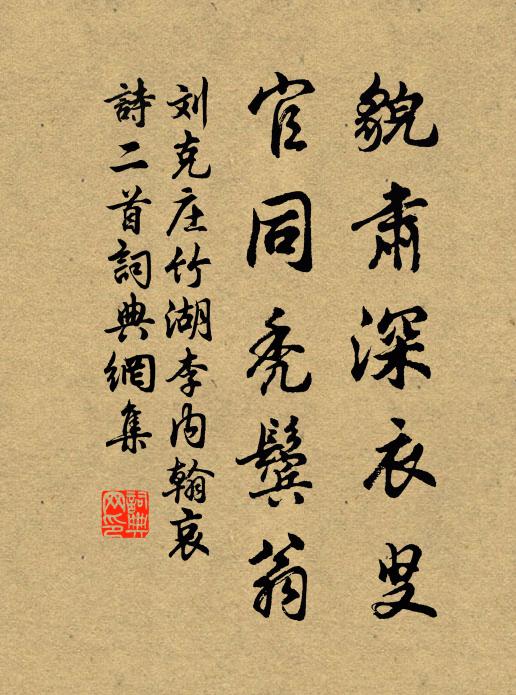 貌肅深衣叟
官同禿鬓翁
刘克庄竹湖李内翰哀
詩二首詞典網集
詞典網印